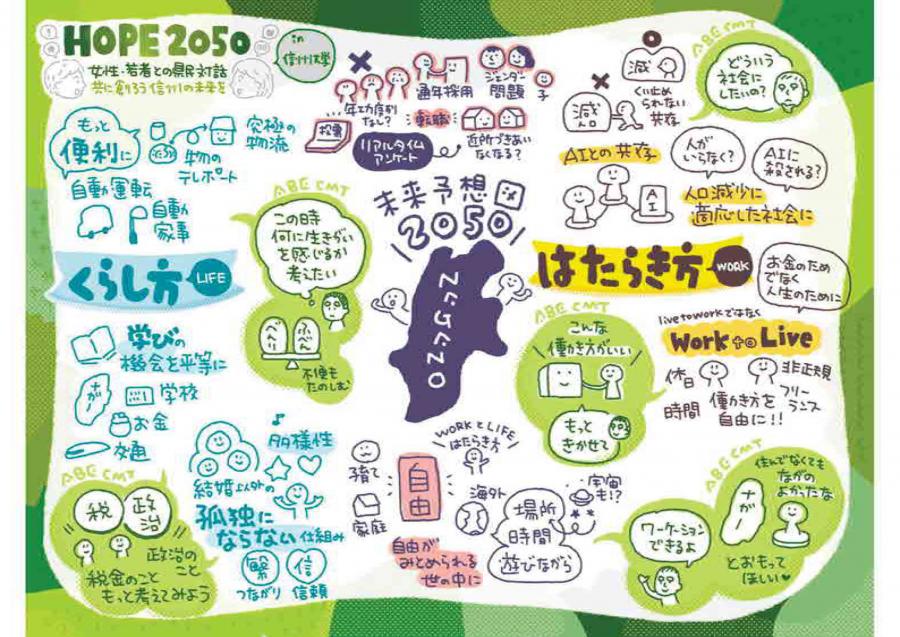 HOPE 2050
in
信州大学
女性・若者との県民対話
共に創ろう信州の未来を
もっと
便利に
物の
テレポート
究極の
物流
自動運転
自動
家事
くらし方
LIFE
学びの
機会を平等に
ナガノ
学校
お金
交通
ABE CMT
税
政治
政治の
こと
税金のこと
もっと考えてみよう
ABE CMT
この時
何に生きがい
を感じるか
考えたい
べんり
ふべん
不便も
たのしむ
多様性
結婚以外の
孤独に
ならない仕組み
繋
つながり
信
信頼
年功序列
なし?
通年採用
ジェンダー
問題
子
投票
転職
リアルタイム
アンケート
近所づきあい
なくなる?
未来予想図
2050
ナガノ
WORKとLIFE
はたらき方
子育て
家庭
自由
自由が
みとめられる
世の中に
海外
宇宙
も!?
場所
時間
遊びながら
減
人口
減
くい止め
られない
共存
ABE CMT
どういう
社会に
したいの?
AIとの共存
AI
人が
いらなく?
AIに
殺される?
人口減少に
適応した社会に
はたらき方
WORK
お金のため
でなく
人生のために
ABE CMT
こんな
働き方がいい
もっと
きかせて
live to workではなく
Work to Live
休日
時間
働き方を
自由に!!
非正規
フリー
ランス
ABE CMT
住んでなくても
ながの
よかったな
ナガノ
とおもって
ほしい
ワーケーション
できるよ